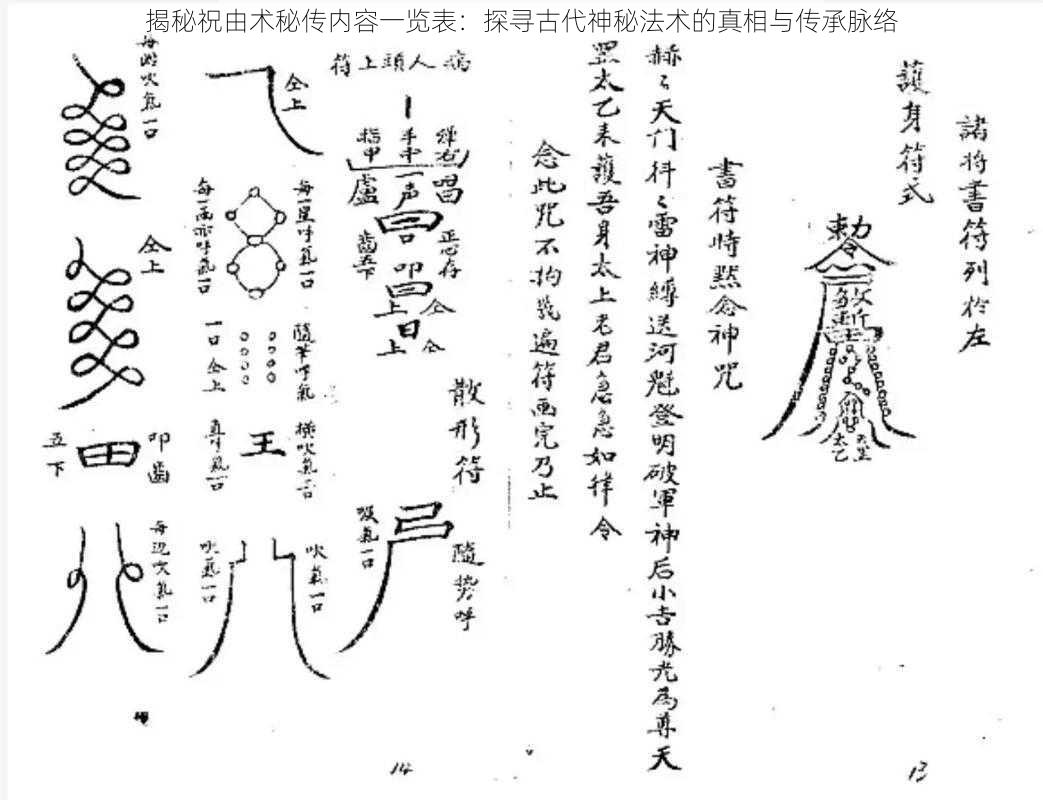 揭秘祝由术秘传内容一览表：探寻古代神秘法术的真相与传承脉络
諸将書符列於左
護身符式
敕令
太乙
書符時黙念神咒
赫〻天门抖〻雷神縛送河魁登明破軍神后小吉勝光爲尊天
罡太乙未護吾身太上老君急急如律令
念此咒不拘幾遍符画完乃止
13
病人頭上符
弹右手中指甲
唱一声
正心存
齒五下
叩
仝上
仝上
散形符
随势呼
吸氣一口
仝上
每一星呼氣一口
隨筆呼氣
一口仝上
横吹氣一口
王
吹氣一口
吹氣一口
每迎吹氣一口
仝上
叩齒
田
五下
14